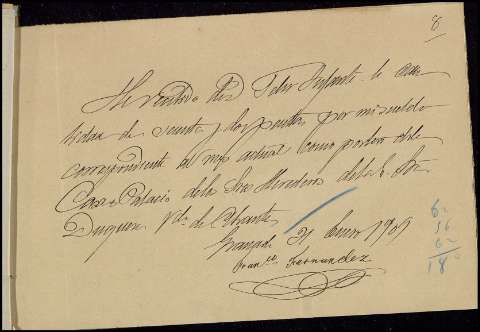 8
He recibido de D Felix Infante la can
tidad de sesenta y dos pesetas por mi sueldo
correspondiente al mes actual como portero de la
Casa Palacio de los Sres Herederos de la E. Sra
Duquesa Vda de Abrantes
Granada 31 Enero 1909
Franco Fernandez
62
56
62
180